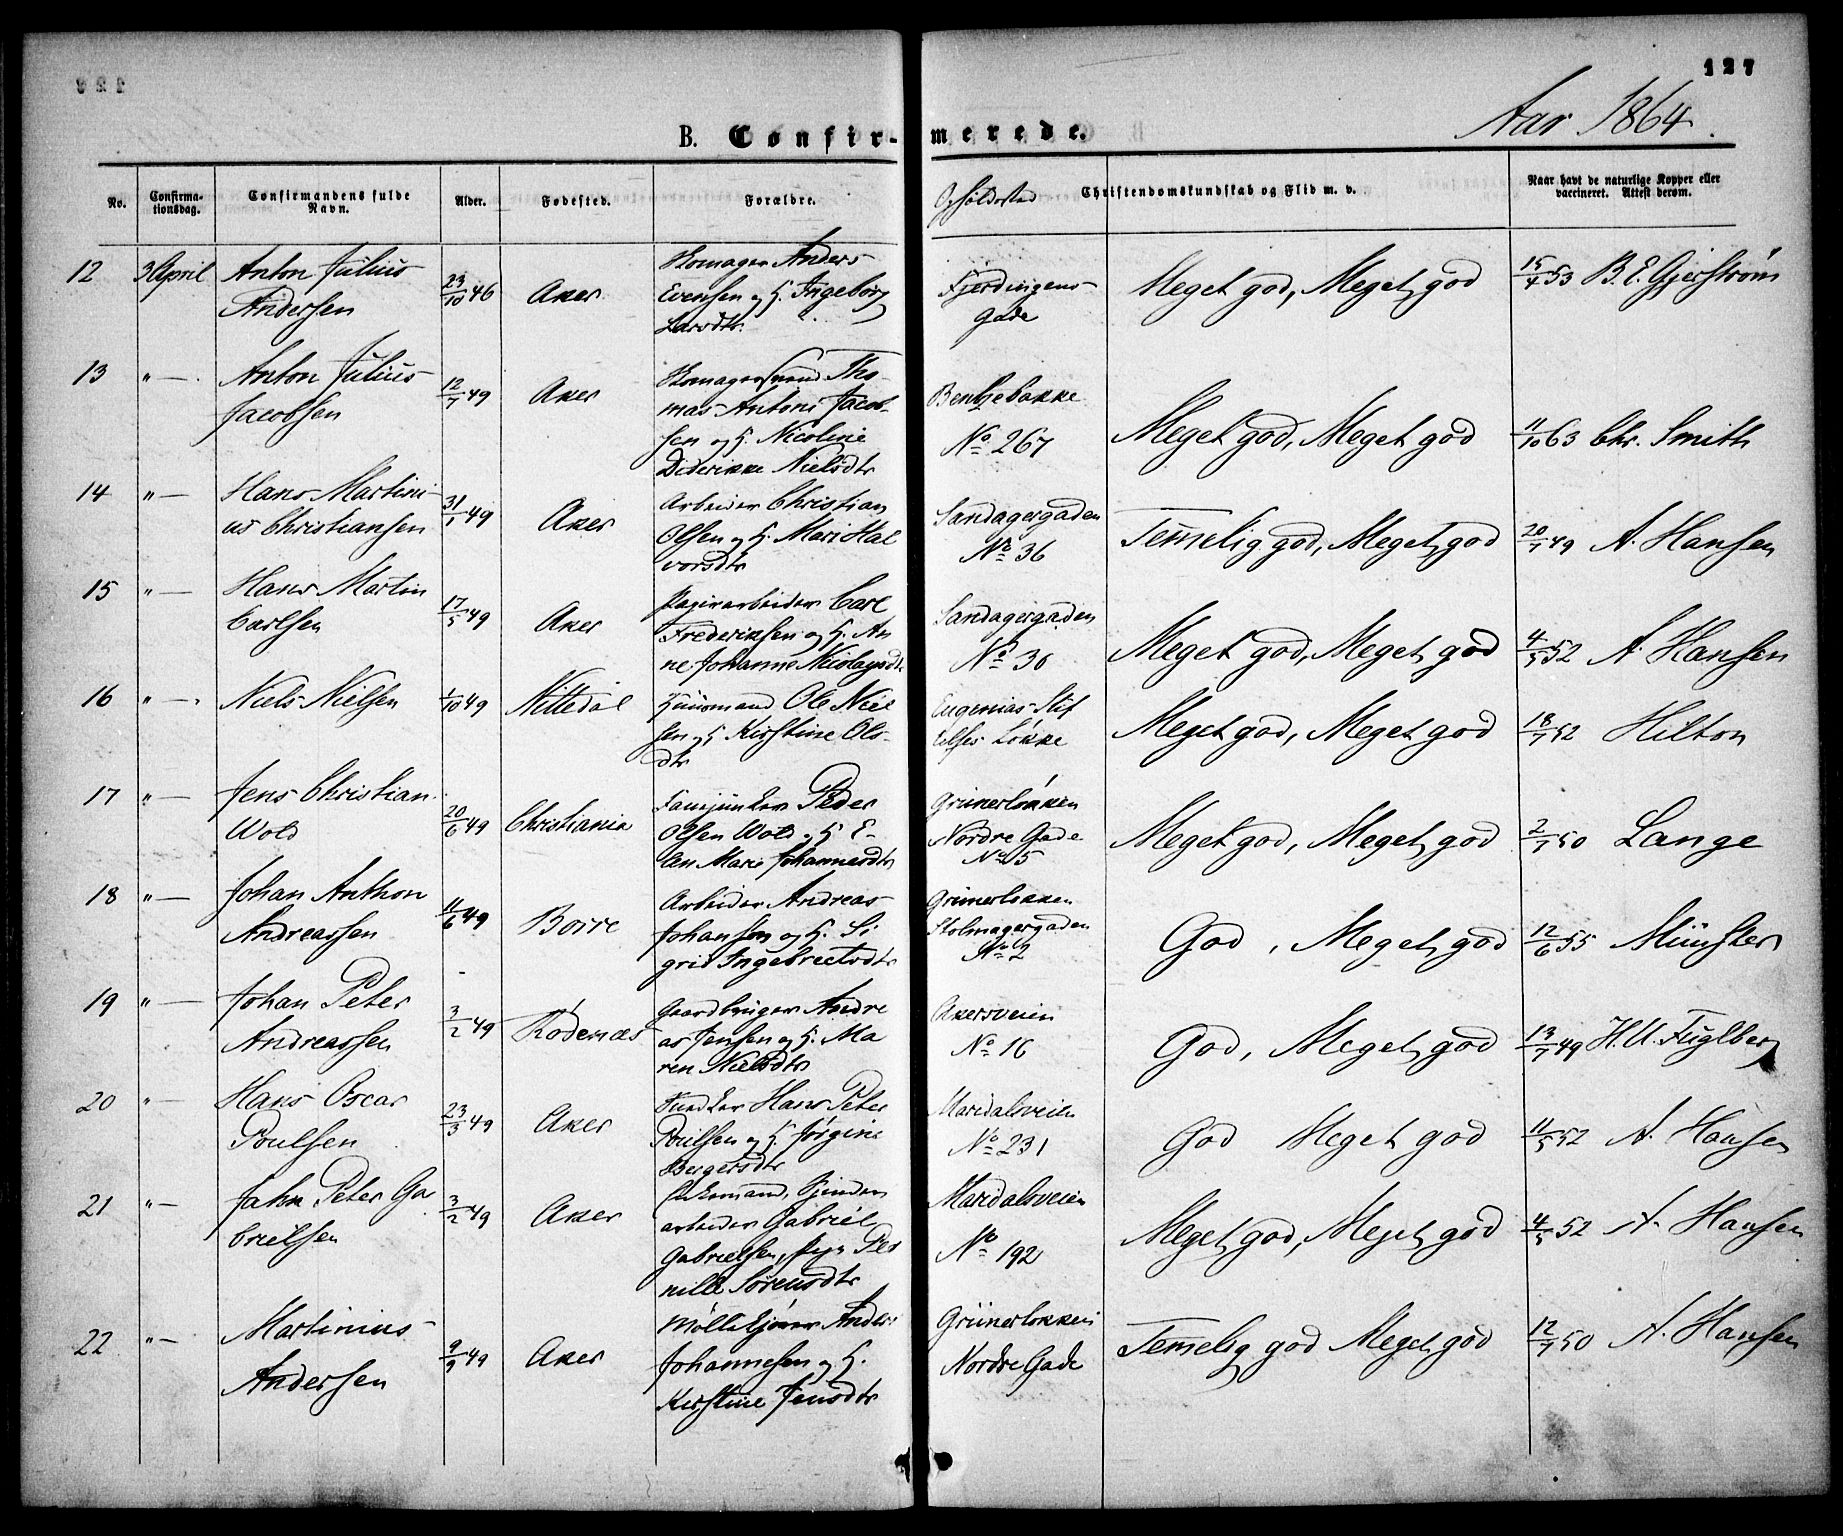 127
Aar 1864.
B. Confir-merede.
No. Confirma-tionsdag. Confirmandens fulde Navn. Alder. Fødested. Forældre. Opholdssted Christendomskundskab og Flid m. v. Naar havt de naturlige Kopper eller vaccineret. Attest derom.
12 3 April Anton Julius 23/10 46 Aker Skomager Anders Fjerdingens- Meget god, Meget god 15/4 53 B. E. Gjerstrøm
Andersen Evensen og H. Ingeborg Gade
Larsdtr.
13 "— Anton Julius 12/7 49 Aker Skomagersvend Tho- Bentsebakke Meget god, Meget god 11/10 63 Chr. Smith
Jacobsen mas Antoni Jacob- No 267
sen og H. Nicoline
Diderikke Nielsdtr
14 "— Hans Martini- 31/1 49 Aker Arbeider Christian Sandagergaden Temmelig god, Meget god 20/7 49 A. Hansen
us Christiansen Olsen og H. Mari Hal No 36
vorsdtr
15 "— Hans Martin 17/5 49 Aker Papirarbeider Carl Sandagergaden Meget god, Meget god 4/5 52 A. Hansen
Carlsen Frederiksen og H. An No 36
ne Johanne Nicolaysdtr
16 "— Niels Nielsen 1/10 49 Nittedal Huusmand Ole Niel Eugenias Stif Meget god, Meget god 18/7 52 Hilton
sen og H Kirstine Ols- telses Løkke
dtr
17 "— Jens Christian 20/6 49 Christiania Peder Grünerløkken Meget god, Meget god 2/7 50 Lange
Wold Olsen Wold og H E- Nordre Gade
len Marie Johannesdtr No 5
18 "— Johan Anthon 11/6 49 Borre Arbeider Andreas Grünerløkken God, Meget god 12/6 55 Münster
Andreassen Johansen og H. Si Stolmagergaden
grid Ingebretsdtr No 2
19 "— Johan Peter 3/2 49 Rødenæs Gaardbruger Andre Akersveien God, Meget god 13/7 49 H. U. Fuglberg
Andreassen as Jensen og H. Ma No 16
ren Nielsdtr
20 "— Hans Oscar 23/3 49 Aker Hans Peter Maridalsveien God Meget god 11/5 52 A. Hansen
Poulsen Poulsen og H. Jørgine No 231
Bergersdtr
21 "— John Peter Ga 3/2 49 Aker Maridalsveien Meget god, Meget god 4/5 52 A. Hansen
brielsen arbeider Gabriel No 192
Gabrielsen, Pige Per
nille Sørensdtr
22 "— Martinius 9/9 49 Aker Anders Grünerløkken Temmelig god Meget god 12/7 50 A. Hansen
Andersen Johannesen og H. Nordre Gade
Kirstine Jensdtr